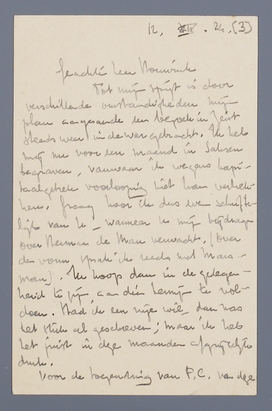 12. XII. 24. (3)
Geachte heer Houwink
Tot mijn spijt is door
verschillende omstandigheden mijn
plan aangaande een bezoek in Zeist
steeds weer in de war gebracht. Ik heb
mij nu voor een maand in
begraven, vanwaar ik wegens kapi-
taalgebrek voorloopig niet kan vertrek-
ken. Graag hoor ik dus eens schrifte-
lijk van U, wanneer U mijn bijdrage
over Herman de Man verwacht, (over
den vorm sprak ik reeds met Mars-
man). Ik hoop dan in de gelegen-
heid te zijn, aan Uw termijn te vol-
doen. Had ik een vrije wil, dan was
het stuk al geschreven; maar ik heb
het juist in deze maanden
druk.
Voor de bespreking van P.C. van der